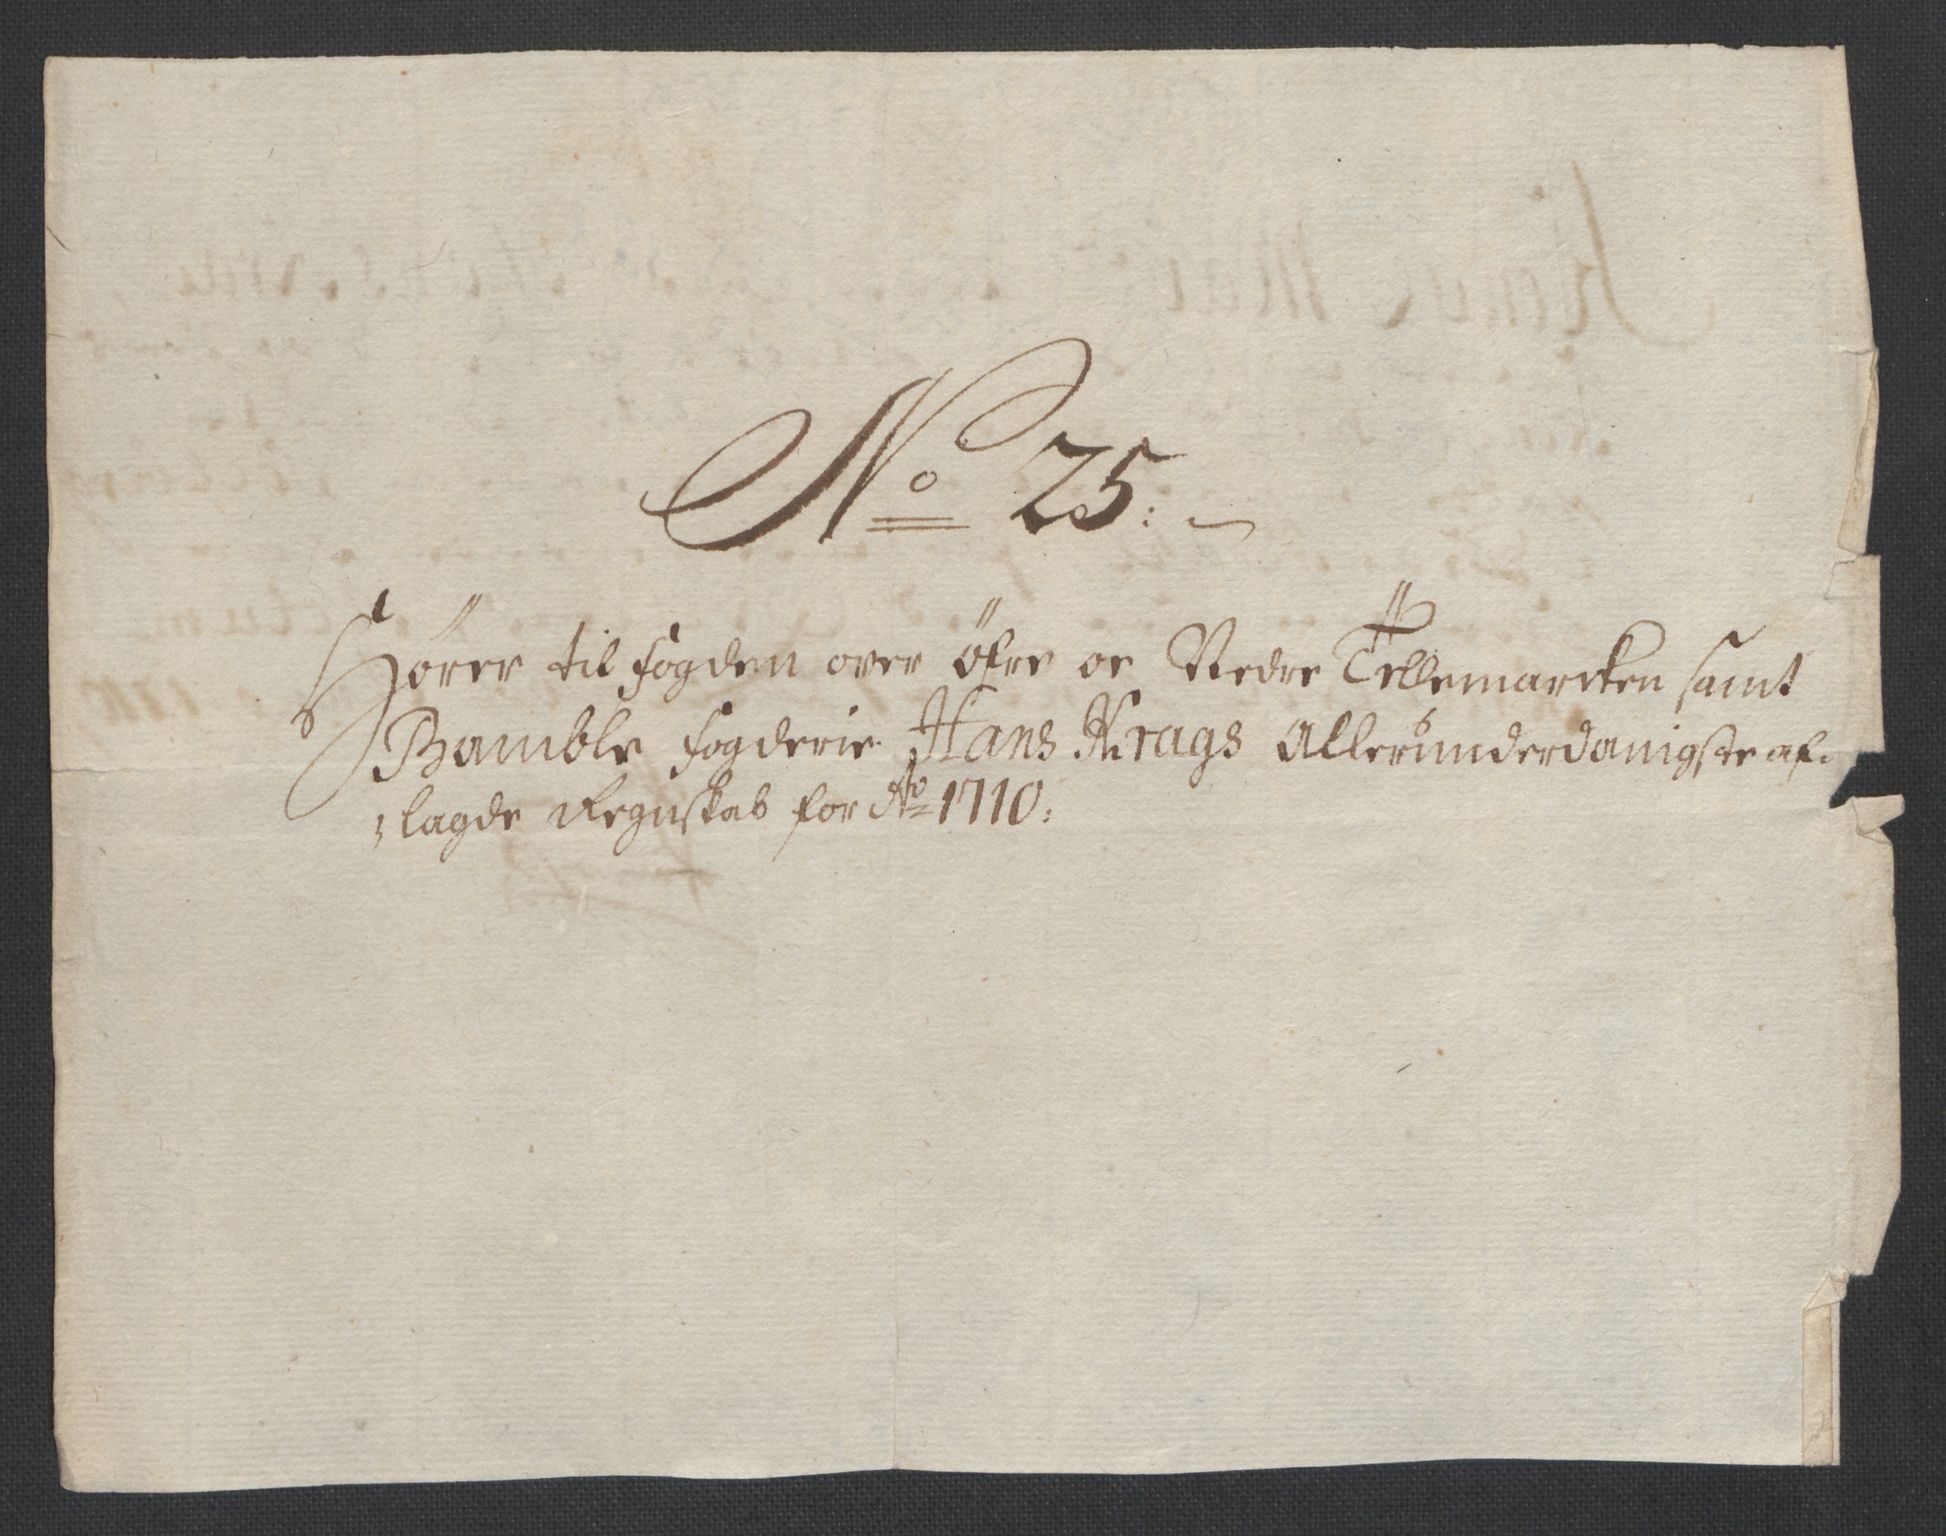 No 25:
Hører til fogden over Øfre oc Nedre Tellemarcken samt
Bamble fogderie Hans Krags Allerunderdanigste af-
lagde Regnskab for Ao 1710: